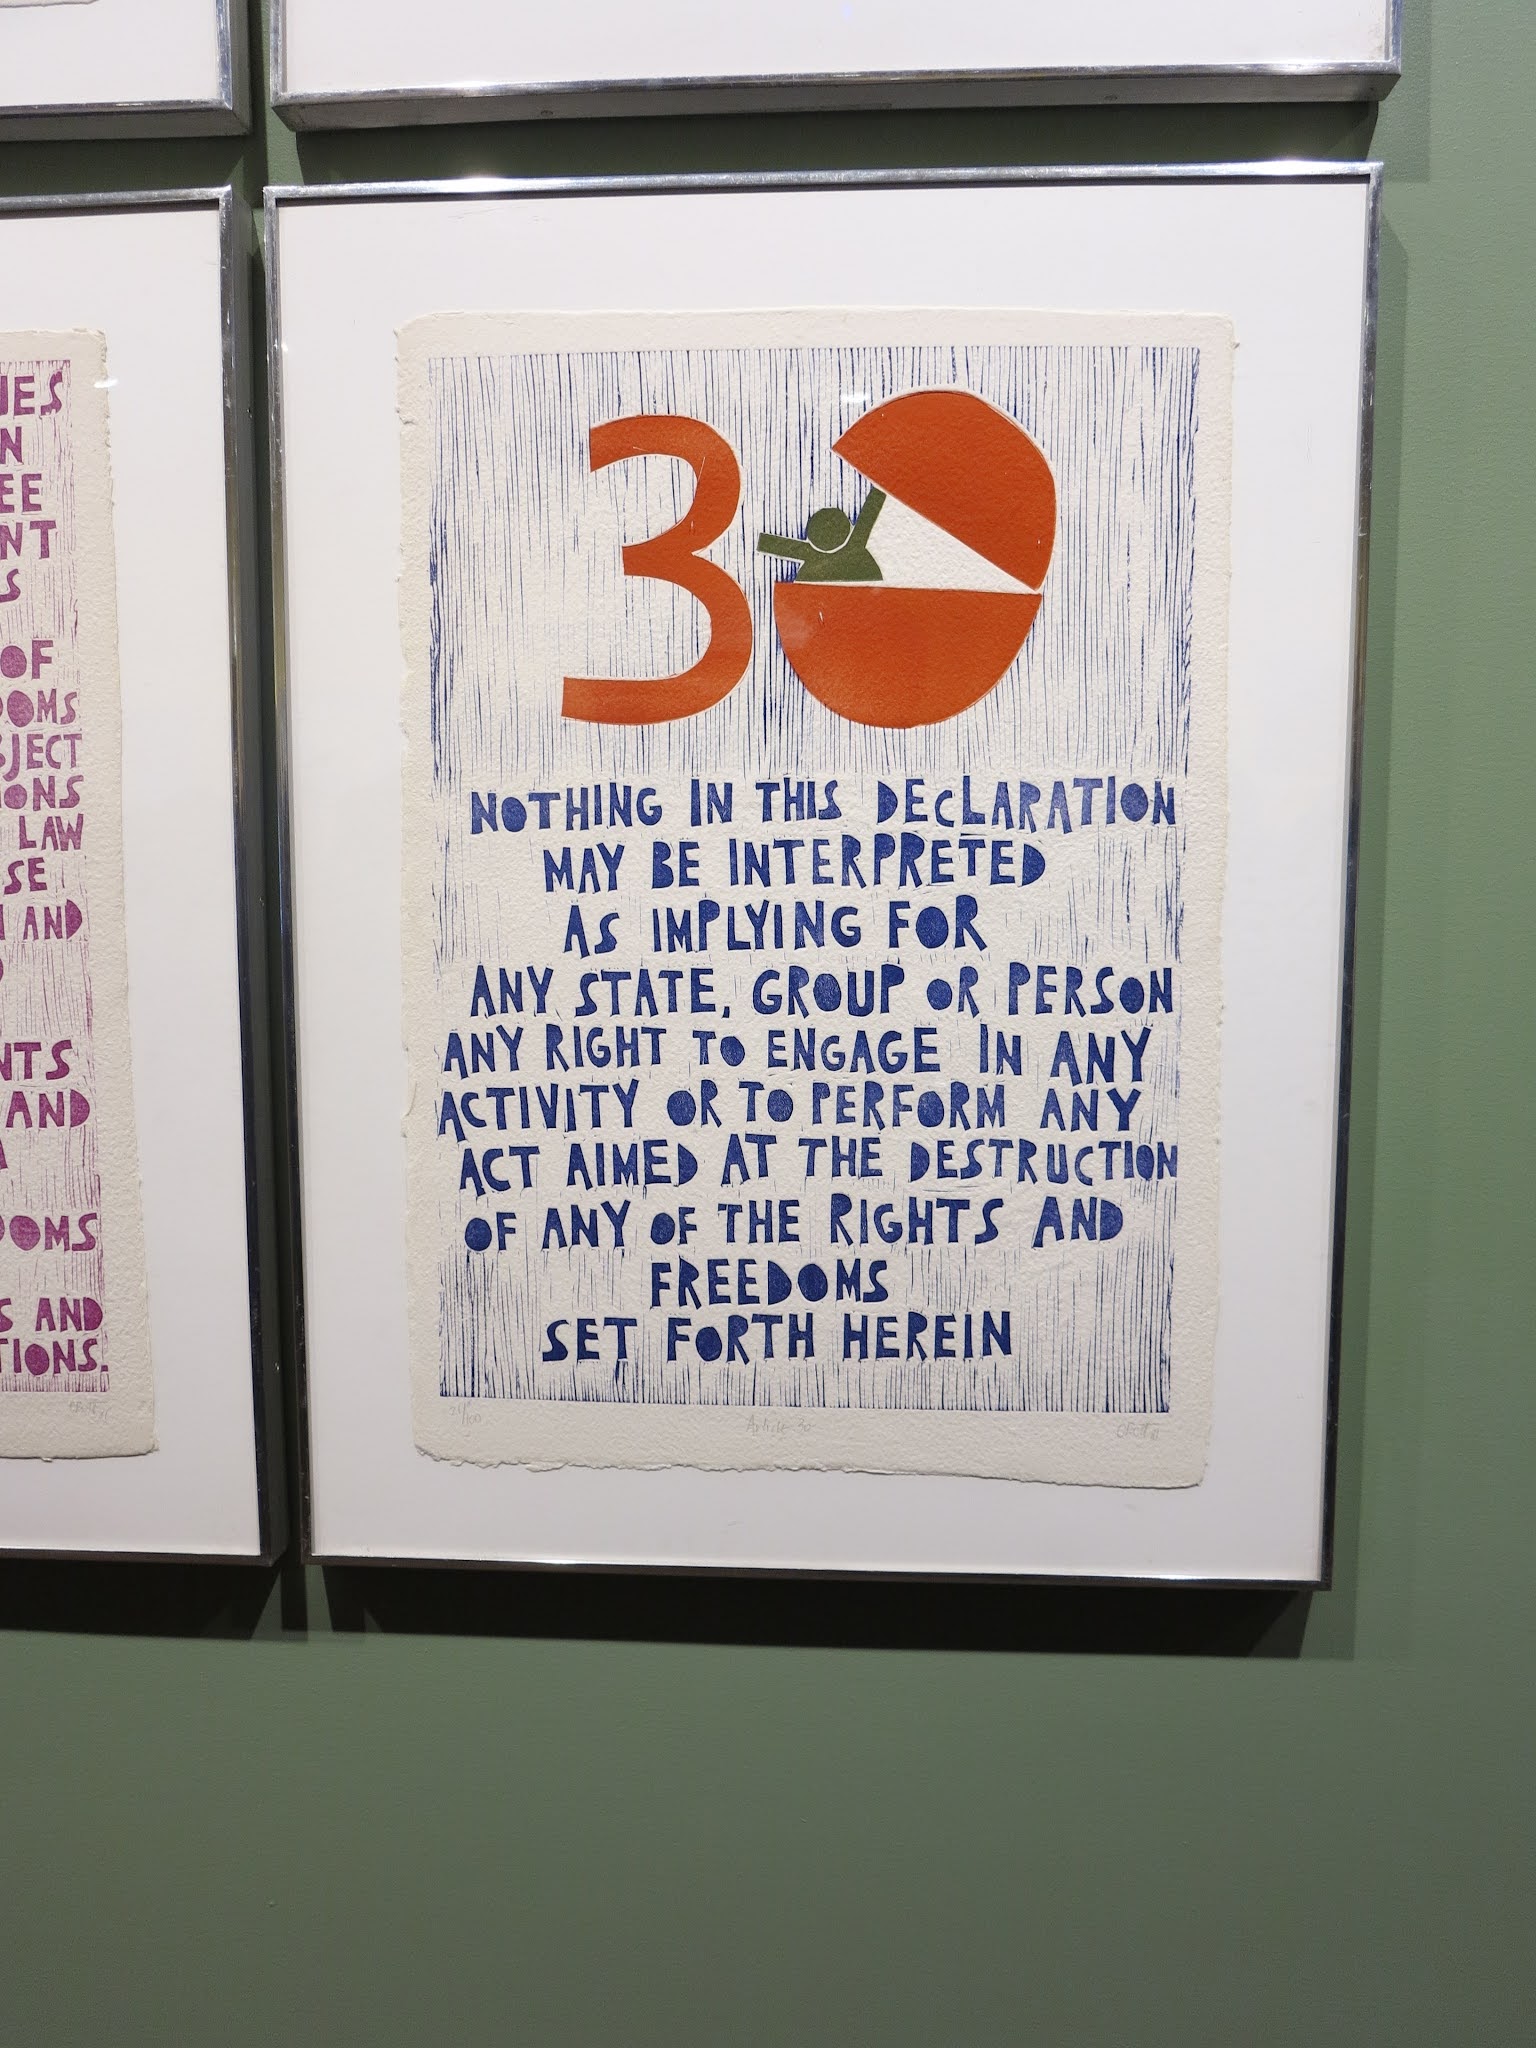 IES
N
EE
NT
S
OF
OOMS
BJECT
IONS
LAW
SE
AND
NTS
AND
A
OOMS
S AND
TIONS.
30
NOTHING IN THIS DECLARATION
MAY BE INTERPRETED
AS IMPLYING FOR
ANY STATE, GROUP OR PERSON
ANY RIGHT TO ENGAGE IN ANY
ACTIVITY OR TO PERFORM ANY
ACT AIMED AT THE DESTRUCTION
OF ANY OF THE RIGHTS AND
FREEDOMS
SET FORTH HEREIN
Article 30